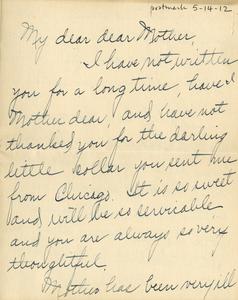 postmark 5-14-12
My dear dear Mother,
I have not written
you for a long time, have I
Mother dear, and have not
thanked you for the darling
little collar you sent me
from Chicago. It is so sweet
and will be so servicable
and you are always so very
thoughtful.
Mother has been very ill